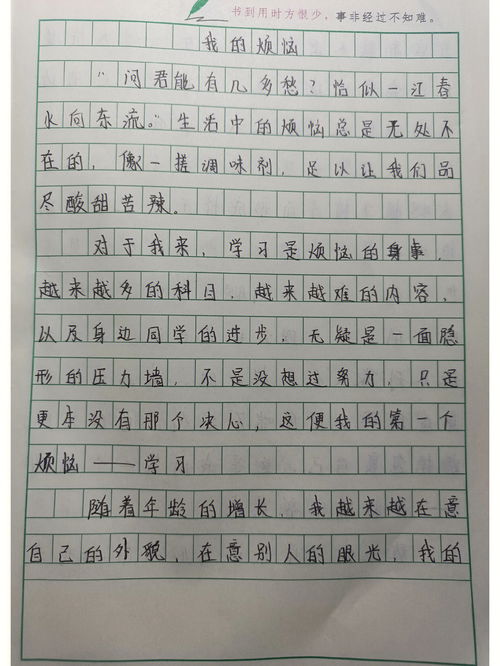 书到用时方恨少，事非经过不知难。
我的烦恼
“问君能有几多愁？恰似一江春
水向东流。”生活中的烦恼总是无处不
在的，像一搓调味剂，足以让我们品
尽酸甜苦辣。
对于我来，学习是烦恼的身事，
越来越多的科目，越来越难的内容，
以及身边同学的进步，无疑是一面隐
形的压力墙，不是没想过努力，只是
更本没有那个决心，这便我的第一个
烦恼——学习
随着年龄的增长，我越来越在意
自己的外貌，在意别人的眼光，我的